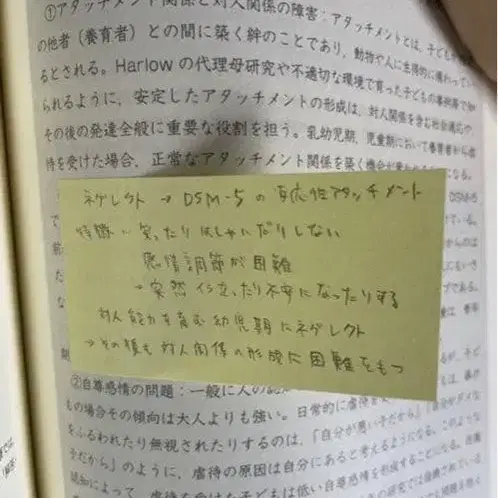 ①アタッチメント関係と対人関係の障害：アタッチメントとは、子どもが
の他者（養育者）との間に築く絆のことであり、動物や人に生得的に備わってい
るとされる。Harlowの代理母研究や不適切な環境で育った子どもの事例等で
られるように、安定したアタッチメントの形成は、対人関係を含む社会適応や、
その後の発達全般に重要な役割を担う。乳幼児期、児童期において養育者から虐
待を受けた場合、正常なアタッチメント関係を築く機会が
DSM-5
ネグレクト → DSM-5の反応性アタッチメント
特徴… 笑ったりはしゃいだりしない
感情調節が困難
→突然イラ立ったり不安になったりする
対人能力を育む幼児期にネグレクト
→その後も対人関係の形成に困難をもつ
②自尊感情の問題：一般に人の
もの場合その傾向は大人よりも強い。日常的に虐待を
をふるわれたり無視されたりするのは、「自分が悪い子だから」「自分がダメな
子だから」のように、虐待の原因は自分にあると考えるようになる。このような
認知によって、虐待を受けた子どもは低い自尊感情を形成することになる。